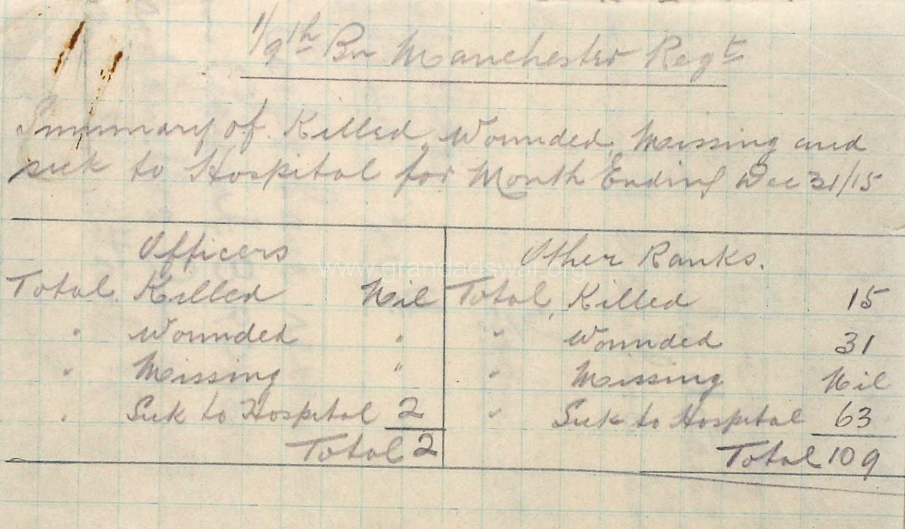 1/9th Bn Manchester Regt
Summary of Killed, Wounded, Missing and
sick to Hospital for Month Ending Dec 31/15
Officers
Total Killed Nil
" Wounded "
" Missing "
" Sick to Hospital 2
Total 2
Other Ranks.
Total Killed 15
" Wounded 31
" Missing Nil
" Sick to Hospital 63
Total 109
www.grandadswar.org